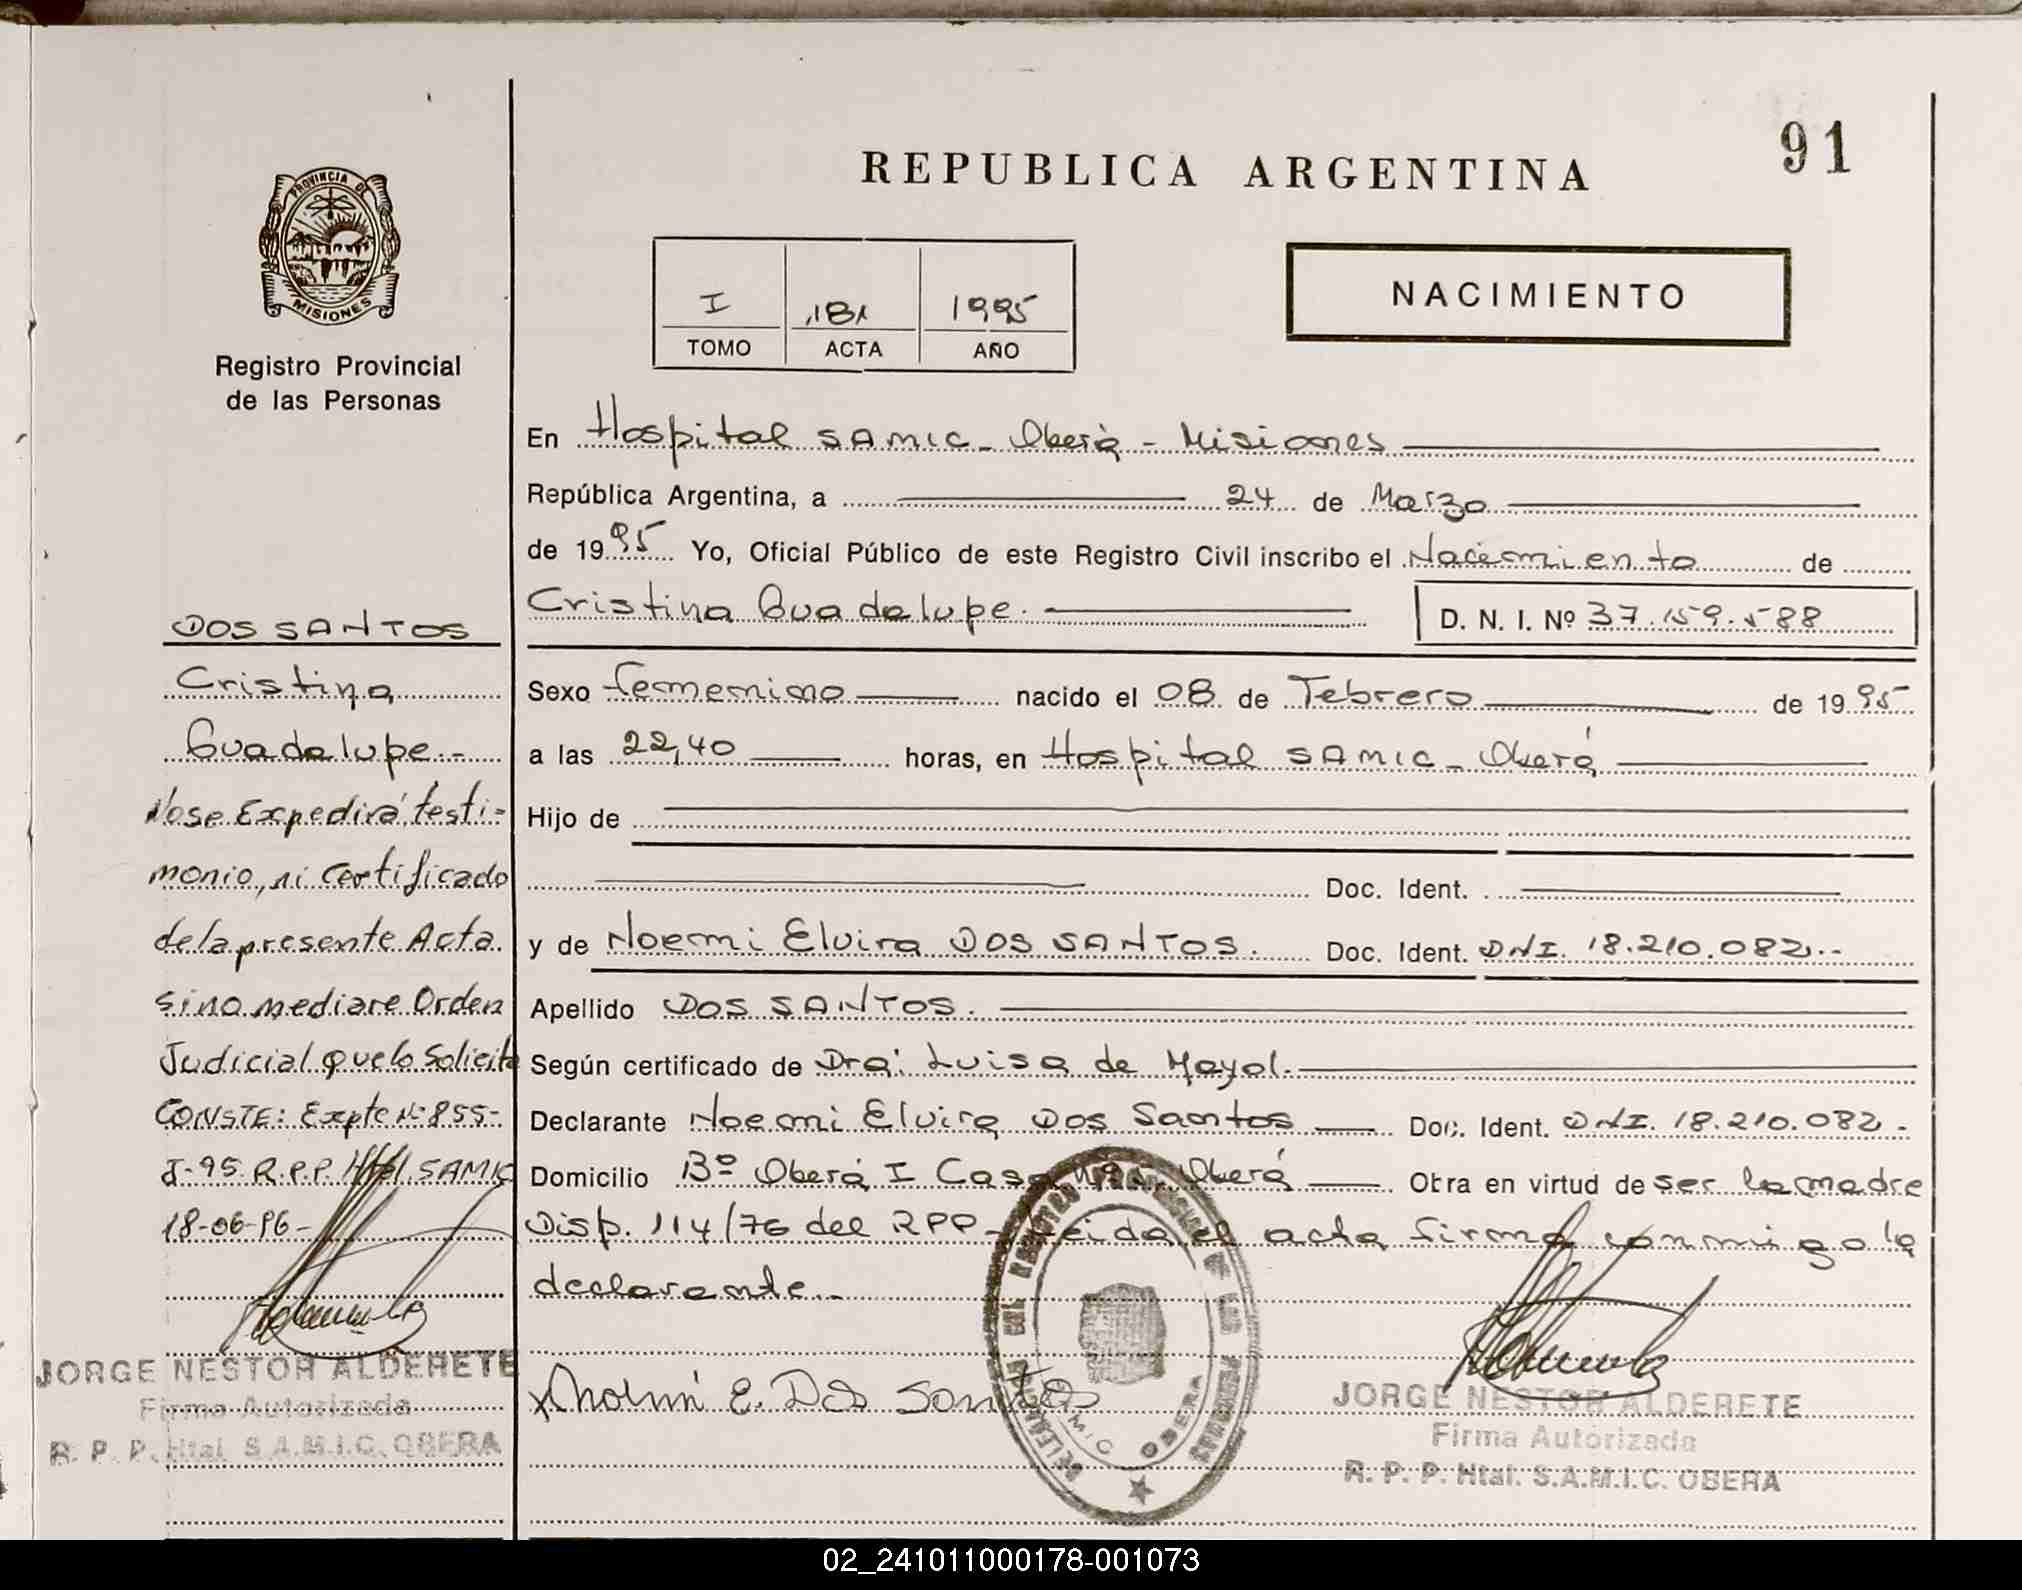 91
REPUBLICA ARGENTINA
PROVINCIA DE
MISIONES
Registro Provincial
de las Personas
NACIMIENTO
I 181 1995
TOMO ACTA AÑO
En Hospital SAMIC - Oberá - Misiones
República Argentina, a 24 de Marzo
de 1995 Yo, Oficial Público de este Registro Civil inscribo el Nacimiento de
Cristina Guadalupe. D. N. I. Nº 37.159.588
Sexo femenino nacido el 08 de Febrero de 1995
a las 22,40 horas, en Hospital SAMIC - Oberá
Hijo de
Doc. Ident.
y de Noemi Elvira DOS SANTOS. Doc. Ident. DNI. 18.210.082.-
Apellido DOS SANTOS.
Según certificado de Dra: Luisa de Mayol.
Declarante Noemi Elvira Dos Santos Doc. Ident. DNI. 18.210.082.-
Domicilio Bº Oberá I Casa Oberá Obra en virtud de ser la madre
Disp. 114/76 del RPP- Leida el acta firma conmigo la
declarante.-
Noemi E. Dos Santos
DOS SANTOS
Cristina
Guadalupe.-
No se Expedirá testi-
monio, ni Certificado
de la presente Acta.
sino mediare Orden
Judicial que lo Solicite
CONSTE: Expte Nº 855-
J-95 R.P.P. Htal. SAMIC
18-06-96-
JORGE NESTOR ALDERETE
Firma Autorizada
R. P. P. Htal. S.A.M.I.C. OBERA
JORGE NESTOR ALDERETE
Firma Autorizada
R. P. P. Htal. S.A.M.I.C. OBERA
DE LAS PERSONAS
OBERA
02_241011000178-001073